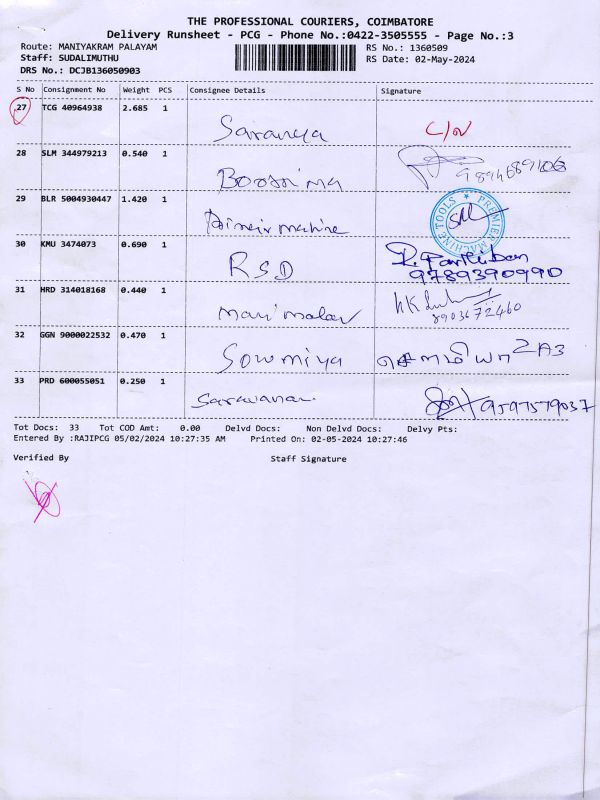 THE PROFESSIONAL COURIERS, COIMBATORE
Delivery Runsheet - PCG - Phone No.:0422-3505555 - Page No.:3
Route: MANIYAKRAM PALAYAM RS No.: 1360509
Staff: SUDALIMUTHU RS Date: 02-May-2024
DRS No.: DCJB136050903
S No Consignment No Weight PCS Consignee Details Signature
27 TCG 40964938 2.685 1
Saranya C/N
28 SLM 344979213 0.540 1
Boornima
29 BLR 5004930447 1.420 1
machine
PREMIER MACHINE TOOLS
30 KMU 3474073 0.690 1
RSD R. Parthiban
9789390990
31 HRD 314018168 0.440 1
Manimalar
8903672460
32 GGN 9000022532 0.470 1
Sowmiya சௌமியா 2A3
33 PRD 600055051 0.250 1
Saravanan 9597579037
Tot Docs: 33 Tot COD Amt: 0.00 Delvd Docs: Non Delvd Docs: Delvy Pts:
Entered By :RAJIPCG 05/02/2024 10:27:35 AM Printed On: 02-05-2024 10:27:46
Verified By Staff Signature